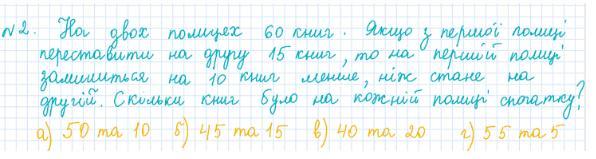 №2. На двох полицях 60 книг. Якщо з першої полиці
переставити на другу 15 книг, то на першій полиці
залишиться на 10 книг менше, ніж стане на
другій. Скільки книг було на кожній полиці спочатку?
а) 50 та 10 б) 45 та 15 в) 40 та 20 г) 55 та 5